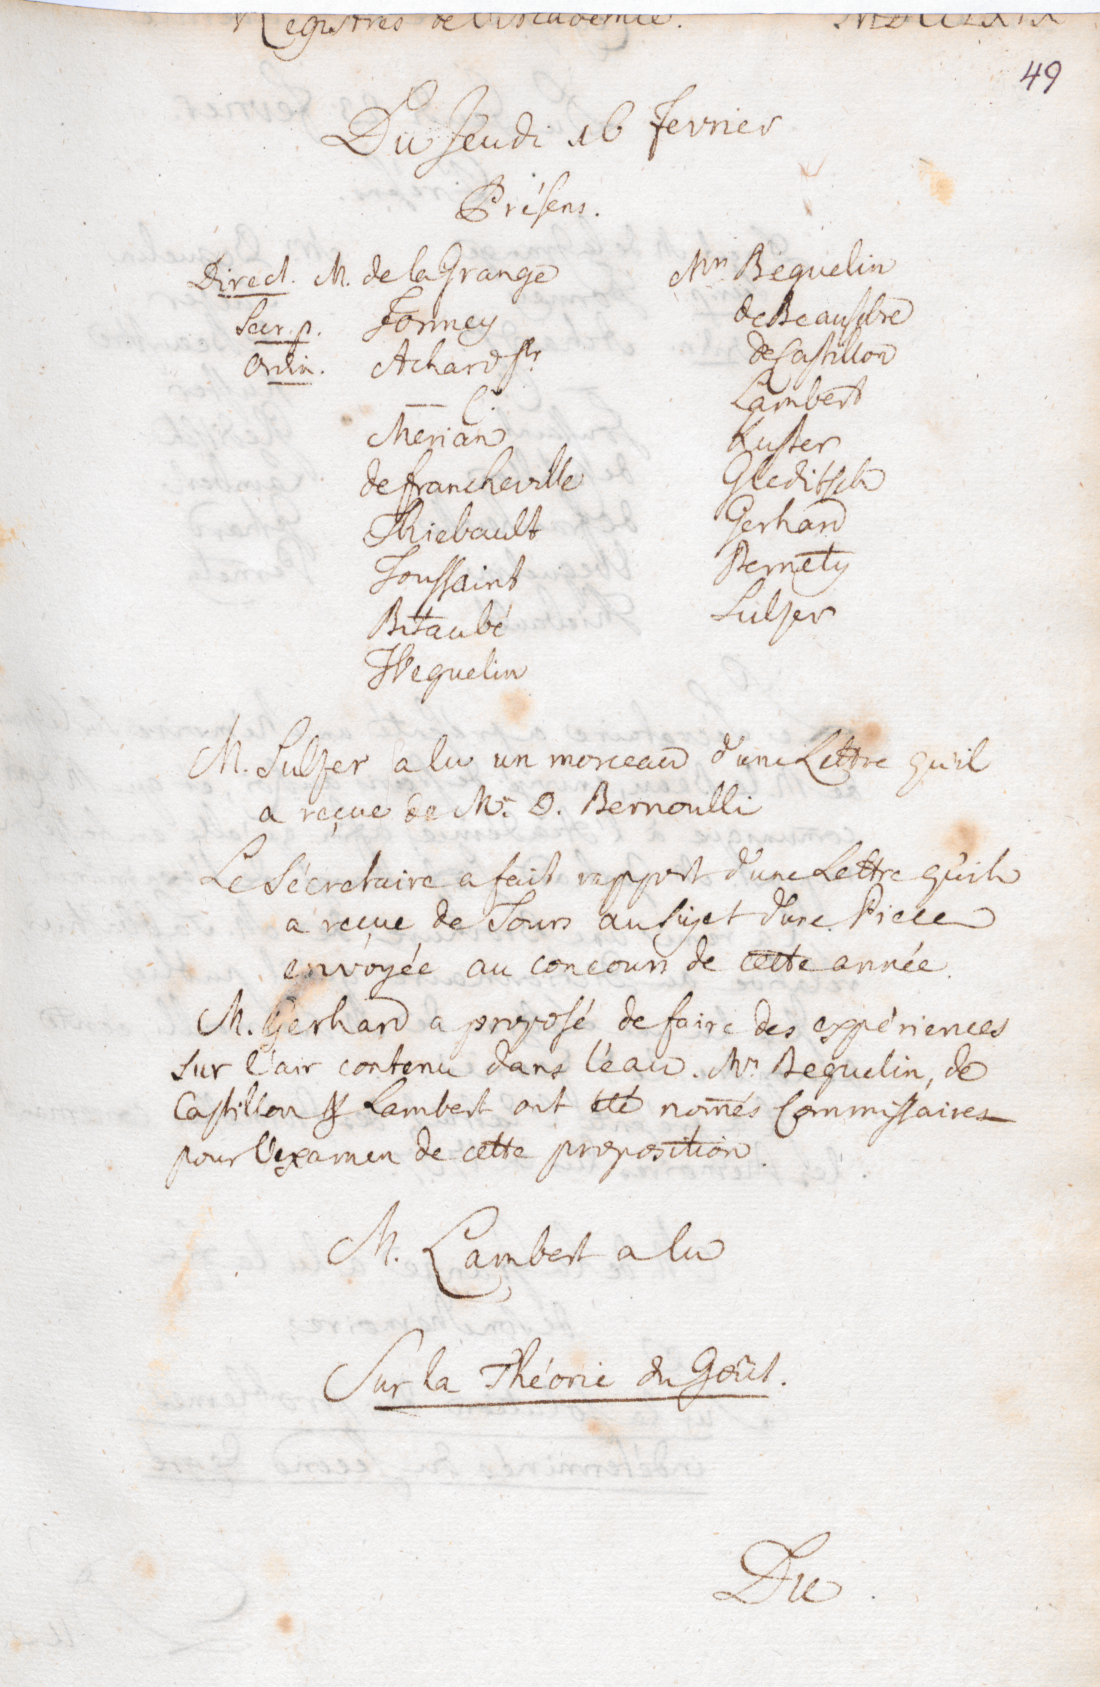 Registres de l'Academie. MDCCLXIX
49
Du Jeudi 16 Fevrier
Présens.
Direct. M. de la Grange
Secr. p. Formey
Ordin. Achard Sr.
Merian
de Francheville
Thiebault
Toussaint
Bitaubé
Weguelin
Mrs Beguelin
de Beausobre
de Castillon
Lambert
Kuster
Gleditsch
Gerhard
Pernety
Sulzer
M. Sulzer a lu un morceau d'une Lettre qu'il
a reçue de Mr. D. Bernoulli
Le Sécretaire a fait rapport d'une Lettre qu'il
a reçue de Tours au sujet d'une Piece
envoyée au concours de cette année.
M. Gerhard a proposé de faire des expériences
sur l'air contenu dans l'eau. Mrs Beguelin, de
Castillon & Lambert ont été només Commissaires
pour l'examen de cette proposition.
M. Lambert a lu
Sur la Théorie du Goût.
Du